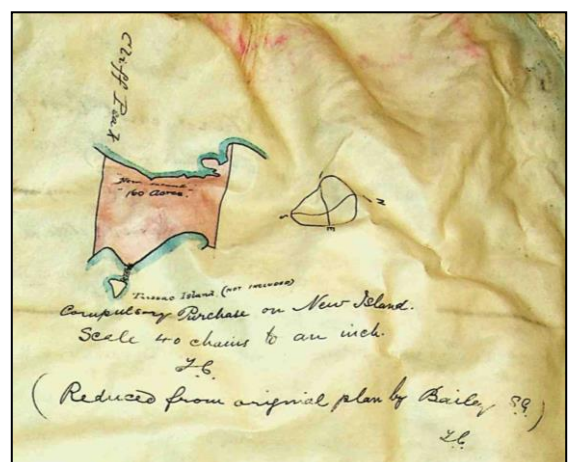 Cliff Peak
160 Acres.
Tussac Island. (NOT INCLUDED)
N
E
Compulsory Purchase on New Island.
Scale 40 chains to an inch.
(Reduced from original plan by Bailey S.G.)